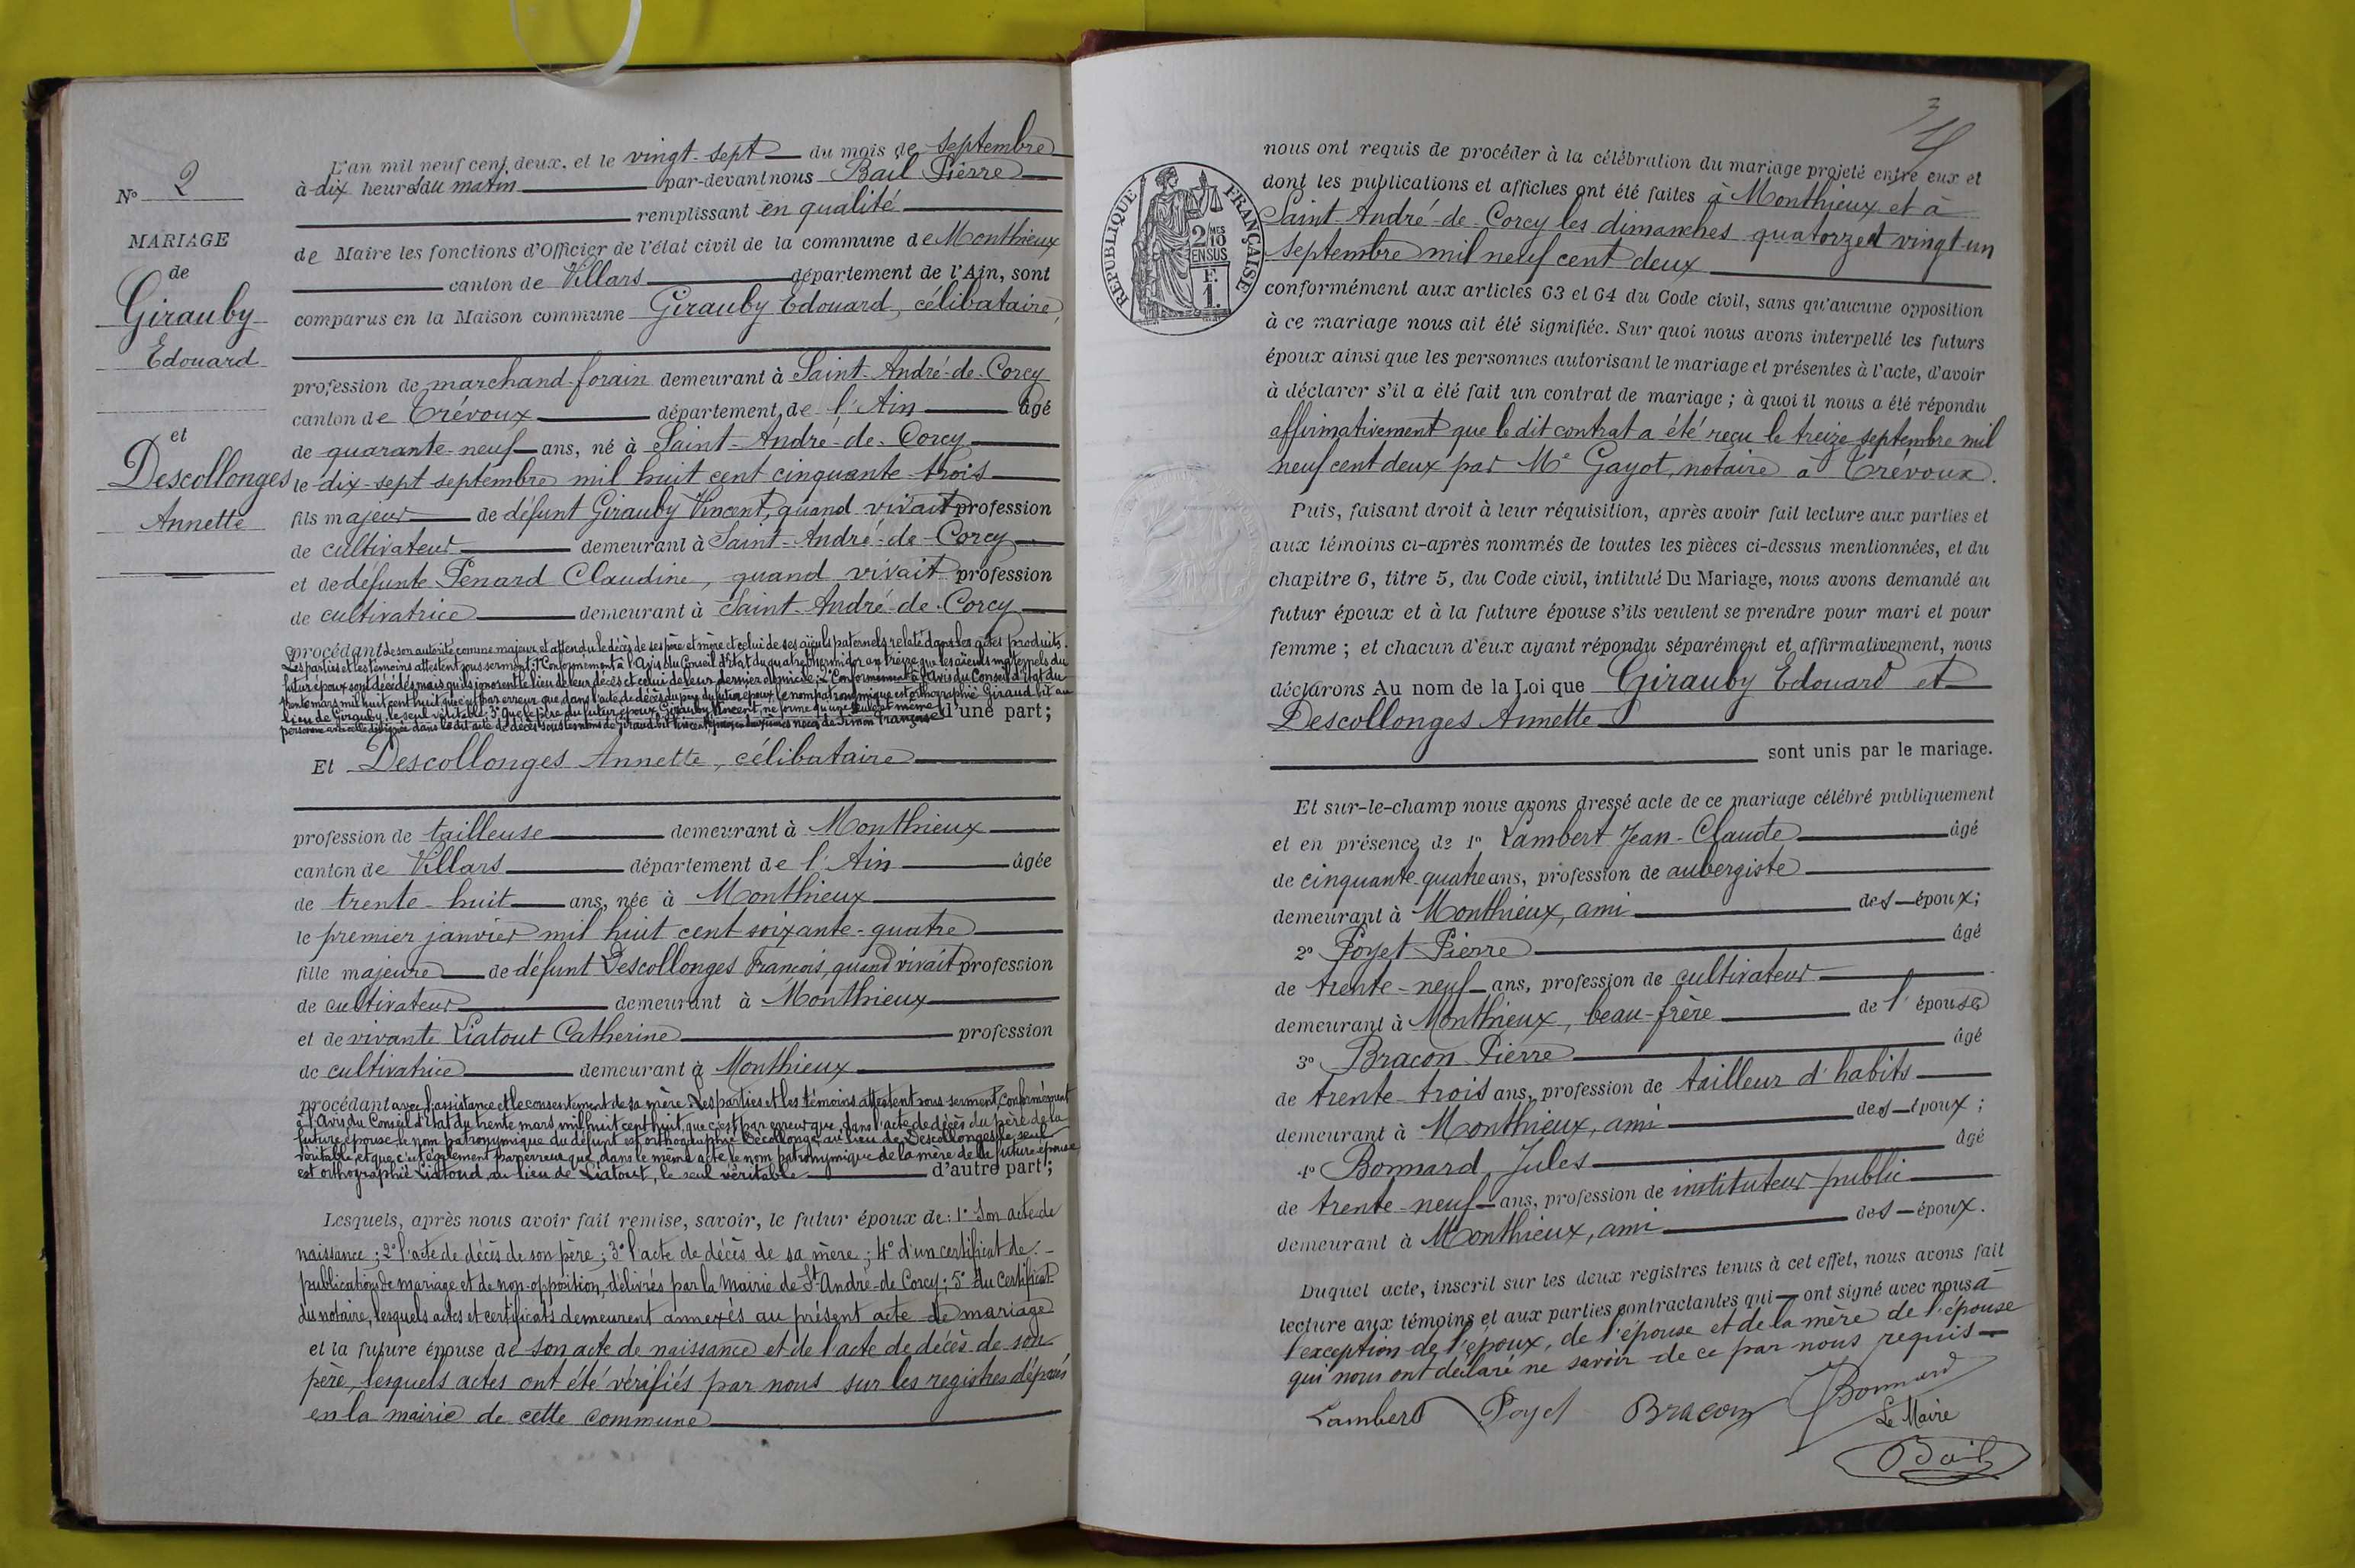 N° 2
MARIAGE
de
Girauby
Edouard
et
Descollonges
Annette
L'an mil neuf cent deux, et le vingt-sept du mois de septembre
à dix heures du matin par-devant nous Bail Pierre
remplissant en qualité
de Maire les fonctions d'Officier de l'état civil de la commune de Monthieux
canton de Villars département de l'Ain, sont
comparus en la Maison commune Girauby Edouard, célibataire,
profession de marchand-forain demeurant à Saint-André-de-Corcy
canton de Trévoux département de l'Ain âgé
de quarante-neuf ans, né à Saint-André-de-Corcy
le dix-sept septembre mil huit cent cinquante-trois
fils majeur de défunt Girauby Vincent, quand vivait profession
de cultivateur demeurant à Saint-André-de-Corcy
et de défunte Penard Claudine, quand vivait profession
de cultivatrice demeurant à Saint-André-de-Corcy
procédant de son autorité comme majeur, et attendu le décès de ses père et mère et celui de ses aïeuls paternels relaté dans les actes produits.
Les parties et les témoins attestent sous serment: 1° Conformément à l'Avis du Conseil d'Etat du quatre thermidor an treize que les aïeuls maternels du
futur époux sont décédés mais qu'ils ignorent le lieu de leur décès et celui de leur dernier domicile; 2° Conformément à l'Avis du Conseil d'Etat du
trente mars mil huit cent huit que c'est par erreur que dans l'acte de décès du père du futur époux le nom patronymique est orthographié Giraud bit au
lieu de Girauby, le seul véritable; 3° Que le père du futur époux Girauby Vincent, ne forme qu'une seule et même
personne avec celle désignée dans le dit acte de décès sous les noms de Giraud bit Vincent, d'une part;
Et Descollonges Annette, célibataire
profession de tailleuse demeurant à Monthieux
canton de Villars département de l'Ain âgée
de trente-huit ans, née à Monthieux
le premier janvier mil huit cent soixante-quatre
fille majeure de défunt Descollonges François, quand vivait profession
de cultivateur demeurant à Monthieux
et de vivante Liatout Catherine profession
de cultivatrice demeurant à Monthieux
procédant avec l'assistance et le consentement de sa mère. Les parties et les témoins attestent sous serment, conformément
à l'Avis du Conseil d'Etat du trente mars mil huit cent huit, que c'est par erreur que, dans l'acte de décès du père de la
future épouse le nom patronymique du défunt est orthographié Decollonge au lieu de Descollonges, le seul
véritable, et que c'est également par erreur que, dans le même acte le nom patronymique de la mère de la future épouse
est orthographié Liatoud au lieu de Liatout, le seul véritable d'autre part;
Lesquels, après nous avoir fait remise, savoir, le futur époux de: 1° Son acte de
naissance; 2° l'acte de décès de son père; 3° l'acte de décès de sa mère; 4° d'un certificat de
publication de mariage et de non-opposition, délivrés par la mairie de St André-de Corcy; 5° du certificat
du notaire, lesquels actes et certificats demeurent annexés au présent acte de mariage
et la future épouse de son acte de naissance et de l'acte de décès de son
père, lesquels actes ont été vérifiés par nous sur les registres déposés
en la mairie de cette commune
3
RÉPUBLIQUE FRANÇAISE
2 MES 10
EN SUS
F.
1.
nous ont requis de procéder à la célébration du mariage projeté entre eux et
dont les publications et affiches ont été faites à Monthieux et à
Saint-André-de-Corcy les dimanches quatorze et vingt-un
septembre mil neuf cent deux
conformément aux articles 63 et 64 du Code civil, sans qu'aucune opposition
à ce mariage nous ait été signifiée. Sur quoi nous avons interpellé les futurs
époux ainsi que les personnes autorisant le mariage et présentes à l'acte, d'avoir
à déclarer s'il a été fait un contrat de mariage; à quoi il nous a été répondu
affirmativement que le dit contrat a été reçu le treize septembre mil
neuf cent deux par Me Gayot, notaire à Trévoux.
Puis, faisant droit à leur réquisition, après avoir fait lecture aux parties et
aux témoins ci-après nommés de toutes les pièces ci-dessus mentionnées, et du
chapitre 6, titre 5, du Code civil, intitulé Du Mariage, nous avons demandé au
futur époux et à la future épouse s'ils veulent se prendre pour mari et pour
femme; et chacun d'eux ayant répondu séparément et affirmativement, nous
déclarons Au nom de la Loi que Girauby Edouard et
Descollonges Annette
sont unis par le mariage.
Et sur-le-champ nous avons dressé acte de ce mariage célébré publiquement
et en présence de 1° Lambert Jean-Claude âgé
de cinquante quatre ans, profession de aubergiste
demeurant à Monthieux, ami des époux;
2° Poyet Pierre âgé
de trente-neuf ans, profession de cultivateur
demeurant à Monthieux, beau-frère de l'épouse
3° Bracon Pierre âgé
de trente-trois ans, profession de tailleur d'habits
demeurant à Monthieux, ami des époux;
4° Bonnard Jules âgé
de trente-neuf ans, profession de instituteur public
demeurant à Monthieux, ami des époux.
Duquel acte, inscrit sur les deux registres tenus à cet effet, nous avons fait
lecture aux témoins et aux parties contractantes qui ont signé avec nous à
l'exception de l'époux, de l'épouse et de la mère de l'épouse
qui nous ont déclaré ne savoir de ce par nous requis
Lambert Poyet Bracon Bonnard
Le Maire
Bail